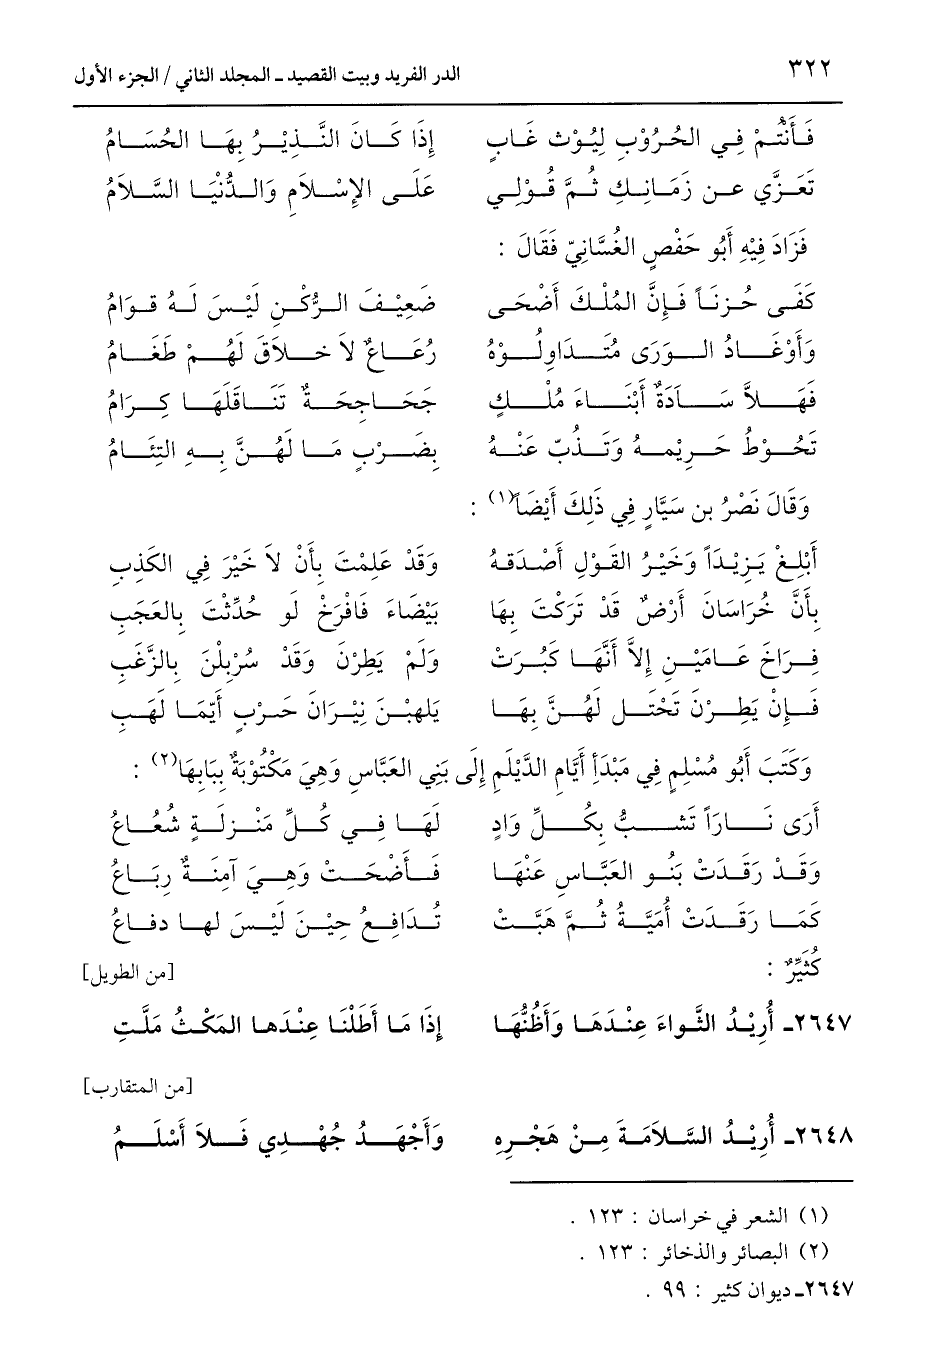 ٣٢٢ الدر الفريد وبيت القصيد ـ المجلد الثاني / الجزء الأول
فَأَنْتُمْ فِي الحُرُوْبِ لِيُوْثُ غَابٍ إِذَا كَانَ النَّذِيْرُ بِهَا الحُسَامُ
تَعَزَّي عَن زَمَانِكِ ثُمَّ قُوْلِي عَلَى الإِسْلاَمِ وَالدُّنْيَا السَّلاَمُ
فَزَادَ فِيْهِ أَبُو حَفْصٍ الغُسَّانِيّ فَقَالَ :
كَفَى حُزنَاً فَإِنَّ المُلْكَ أَضْحَى ضَعِيْفَ الرُّكْنِ لَيْسَ لَهُ قوَامُ
وَأَوْغَادُ الوَرَى مُتَدَاوِلُوْهُ رُعَاعٌ لاَ خلاَقَ لَهُمْ طغَامُ
فَهَلاَّ سَادَةٌ أَبْنَاءَ مُلْكٍ جَحَاجِحَةٌ تَنَاقَلَهَا كِرَامُ
تَحُوْطُ حَرِيْمهُ وَتَذُبّ عَنْهُ بِضَرْبٍ مَا لَهُنَّ بِهِ التِئَامُ
وَقَالَ نَصْرُ بن سَيَّارٍ فِي ذَلِكَ أَيْضَاً(١) :
أَبْلِغْ يَزِيْدَاً وَخَيْرُ القَوْلِ أَصْدَقهُ وَقَدْ عَلِمْتَ بِأَنْ لاَ خَيْرَ فِي الكَذِبِ
بِأَنَّ خُرَاسَانَ أَرْضٌ قَدْ تَرَكْتَ بِهَا بَيْضَاءَ فَافْرَخَ لَو حُدِّثْتَ بِالعَجَبِ
فِرَاخَ عَامَيْنِ إِلاَّ أَنَّهَا كَبُرَتْ وَلَمْ يَطِرْنَ وَقَدْ سُرْبِلْنَ بِالزَّغَبِ
فَإِنْ يَطِرْنَ تَحْتَل لَهُنَّ بِهَا يَلهِبْنَ نِيْرَانَ حَربٍ أَيّمَا لَهَبِ
وَكَتَبَ أَبُو مُسْلِمٍ فِي مَبْدَأِ أَيَّامِ الدَّيْلَمِ إِلَى بَنِي العَبَّاسِ وَهِيَ مَكْتُوْبَةٌ بِبَابِهَا(٢) :
أَرَى نَارَاً تَشبُّ بِكُلِّ وَادٍ لَهَا فِي كُلِّ مَنْزلَةٍ شُعَاعُ
وَقَدْ رَقَدَتْ بَنُو العَبَّاسِ عَنْهَا فَأَضْحَتْ وَهِيَ آمِنَةٌ رِبَاعُ
كَمَا رَقَدَتْ أُمَيَّةُ ثُمَّ هَبَّتْ تُدَافِعُ حِيْنَ لَيْسَ لها دفاعُ
كُثَيِّرٌ : [من الطويل]
٢٦٤٧ـ أُرِيْدُ الثَّوَاءَ عِنْدَهَا وَأَظُنُّهَا إِذَا مَا أَطَلْنَا عِنْدَها المَكْثُ مَلَّتِ
[من المتقارب]
٢٦٤٨ـ أُرِيْدُ السَّلاَمَةَ مِنْ هَجْرِهِ وَأَجْهَدُ جُهْدِي فَلاَ أَسْلَمُ
(١) الشعر في خراسان : ١٢٣ .
(٢) البصائر والذخائر : ١٢٣ .
٢٦٤٧ـ ديوان كثير : ٩٩ .